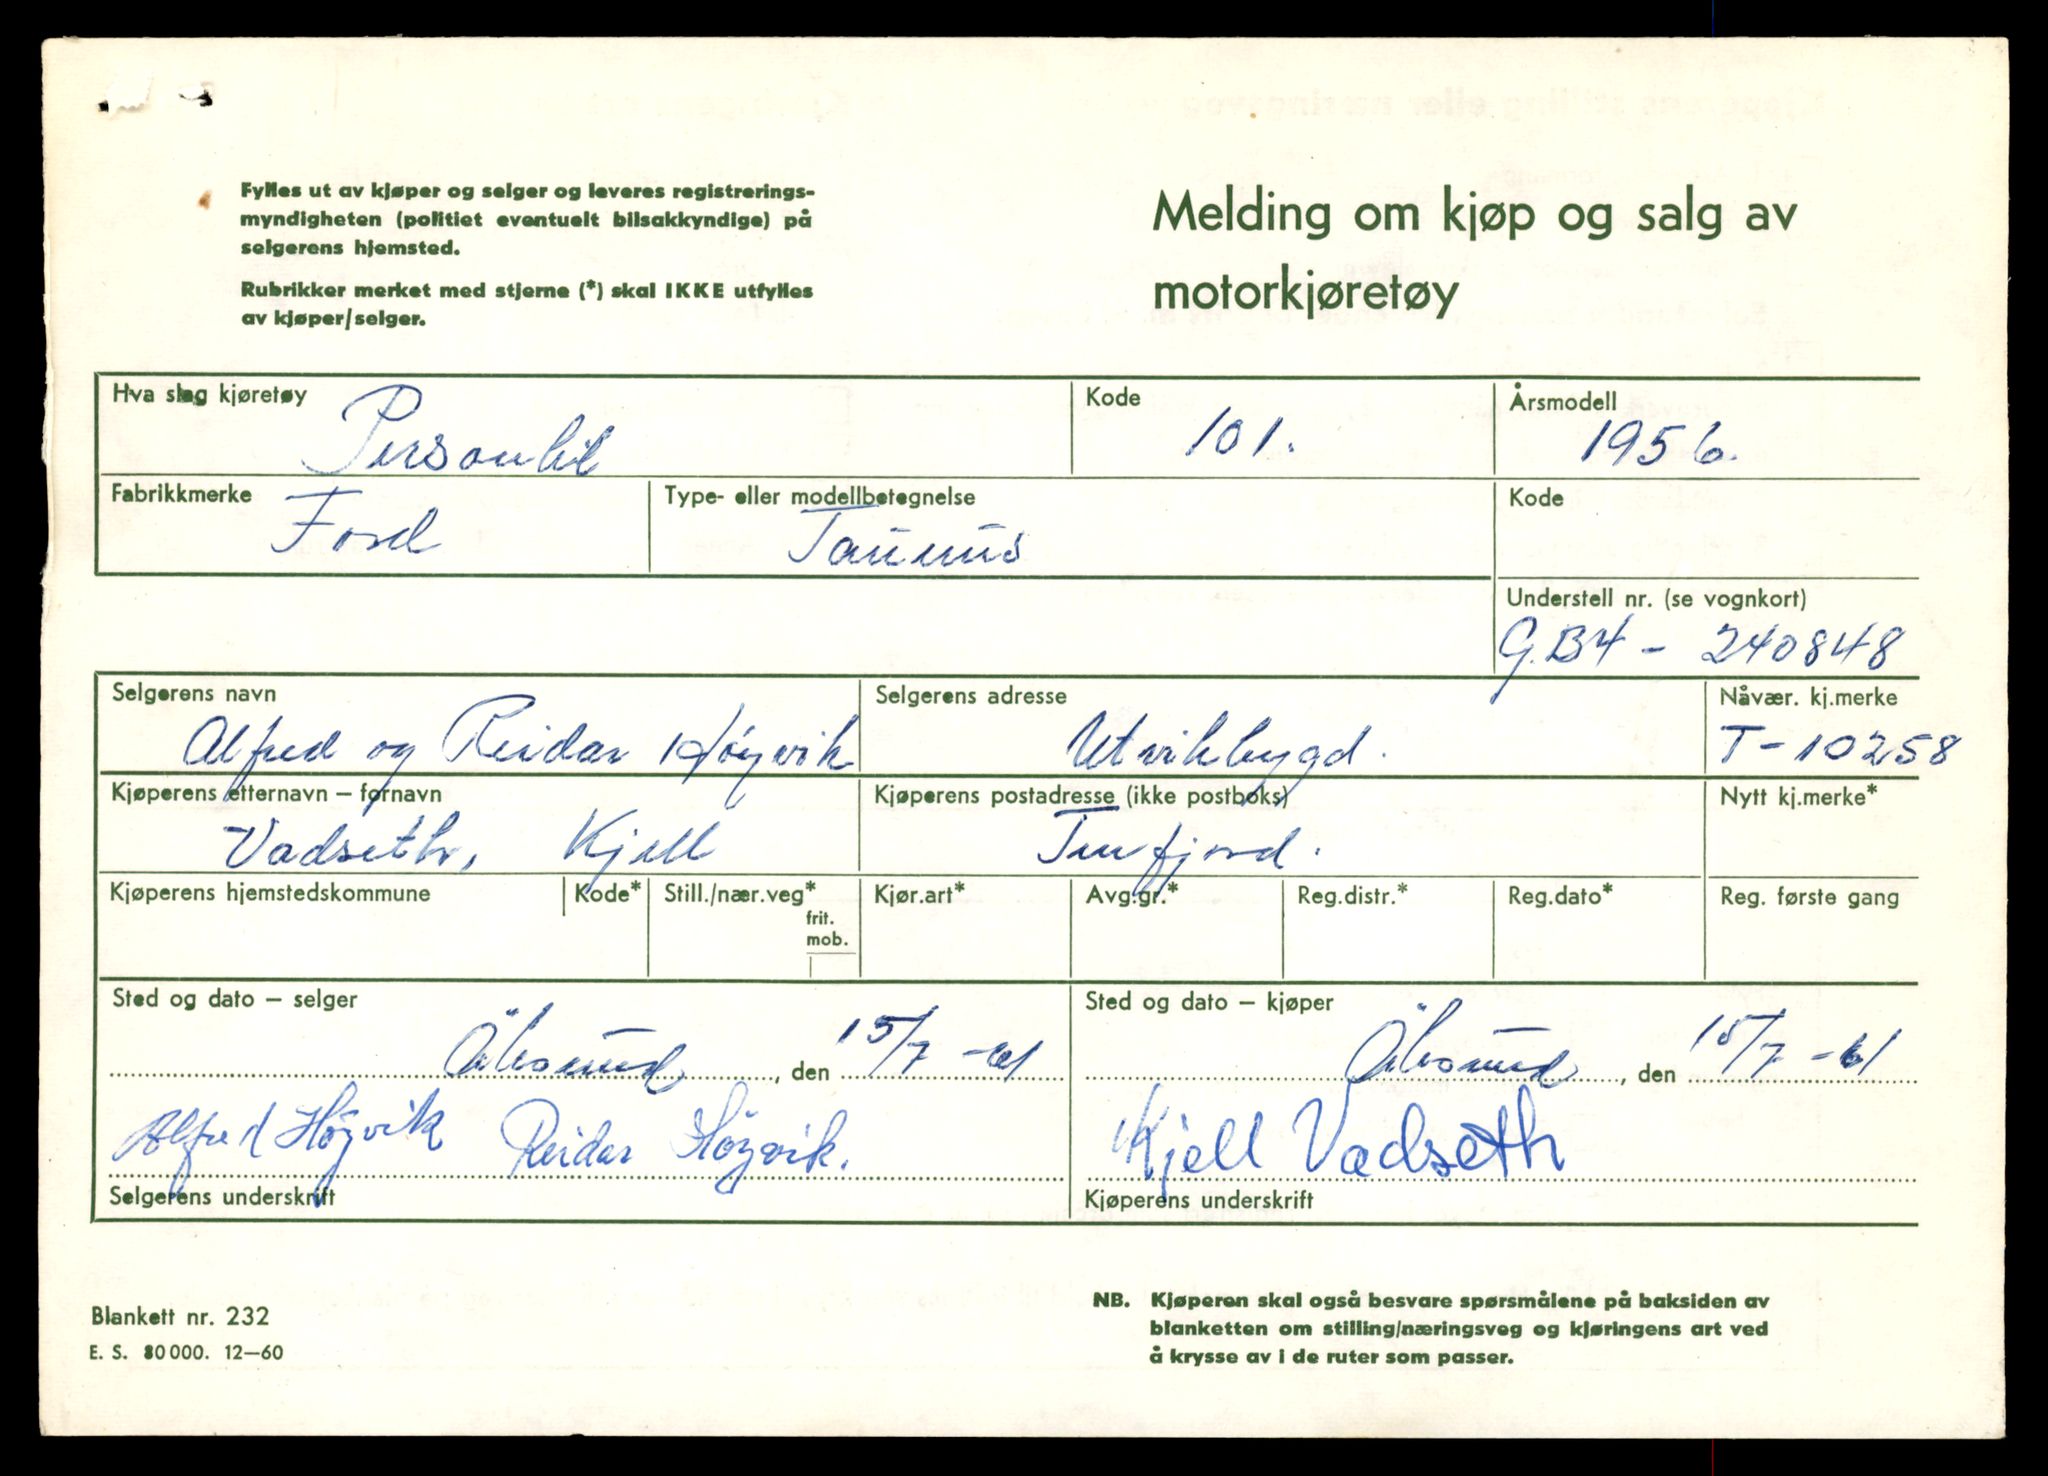 Fylles ut av kjøper og selger og leveres registrerings-
myndigheten (politiet eventuelt bilsakkyndige) på
selgerens hjemsted.
Rubrikker merket med stjerne (*) skal IKKE utfylles
av kjøper/selger.
Melding om kjøp og salg av
motorkjøretøy
Hva slag kjøretøy
Personbil
Kode
101.
Årsmodell
1956.
Fabrikkmerke
Ford
Type- eller modellbetegnelse
Taunus
Kode
Understell nr. (se vognkort)
G.B4 - 240848
Selgerens navn
Alfred og Reidar Høgvik
Selgerens adresse
Utvikbygd.
Nåvær. kj.merke
T-10258
Kjøperens etternavn – fornavn
Vadseth, Kjell
Kjøperens postadresse (ikke postboks)
Nytt kj.merke*
Kjøperens hjemstedskommune
Kode*
Still./nær.veg*
frit.
mob.
Kjør.art*
Avg.gr.*
Reg.distr.*
Reg.dato*
Reg. første gang
Sted og dato – selger
Ålesund, den 15/7 -61
Alfred Høgvik Reidar Høgvik.
Selgerens underskrift
Sted og dato – kjøper
Ålesund, den 15/7 -61
Kjell Vadseth
Kjøperens underskrift
Blankett nr. 232
E. S. 80 000. 12—60
NB. Kjøperen skal også besvare spørsmålene på baksiden av
blanketten om stilling/næringsveg og kjøringens art ved
å krysse av i de ruter som passer.